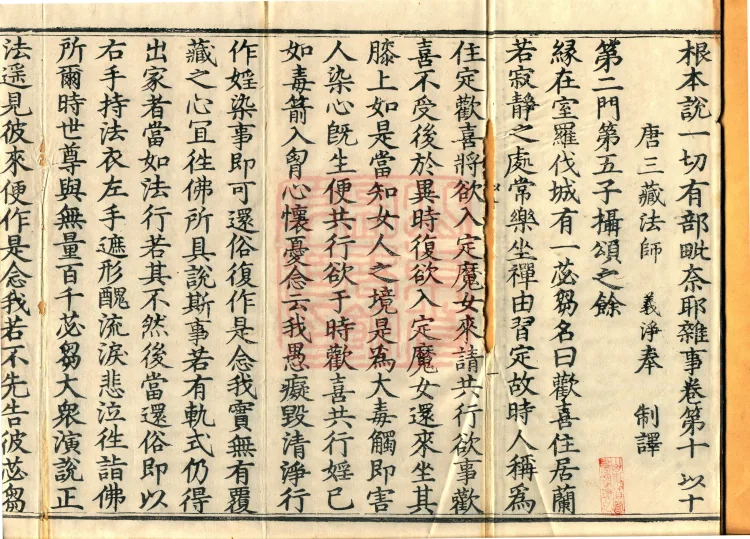 根本說一切有部毗奈耶雜事卷第十 以十
唐三藏法師 義淨奉 制譯
第二門第五子攝頌之餘
緣在室羅伐城有一苾芻名曰歡喜住居蘭
若寂靜之處常樂坐禪由習定故時人稱為
住定歡喜將欲入定魔女來請共行欲事歡
喜不受後於異時復欲入定魔女還來坐其
膝上如是當知女人之境是為大毒觸即害
人染心既生便共行欲于時歡喜共行婬已
如毒箭入胷心懷憂念云我愚癡毀清淨行
作婬染事即可還俗復作是念我實無有覆
藏之心冝往佛所具說斯事若有軌式仍得
出家者當如法行若其不然後當還俗即以
右手持法衣左手遮形醜流淚悲泣往詣佛
所爾時世尊與無量百千苾芻大衆演說正
法遥見彼來便作是念我若不先告彼苾芻